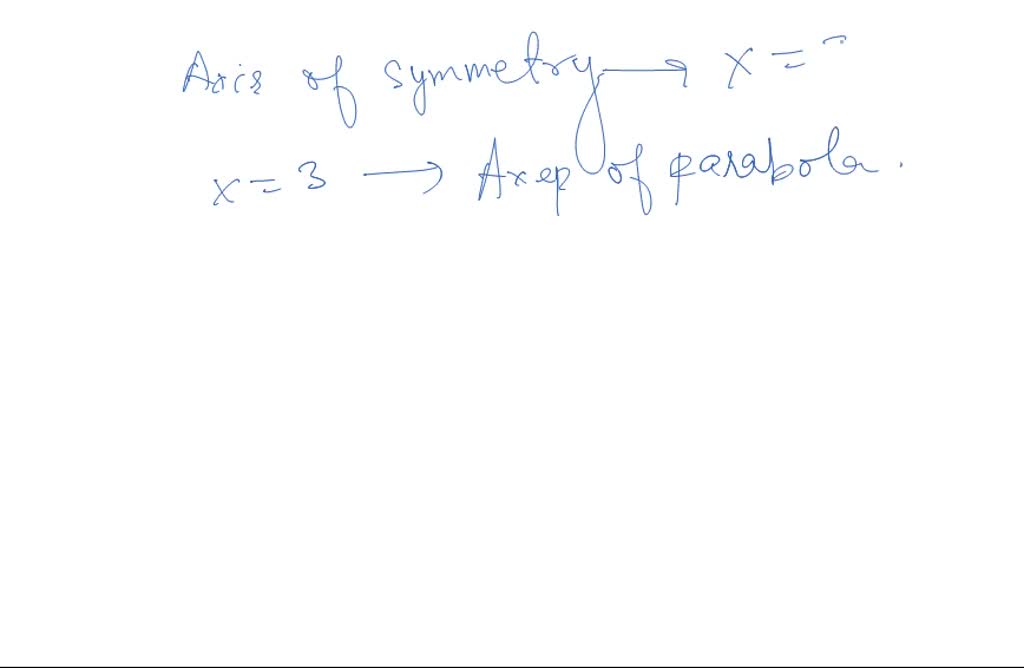 Axis of symmetry → x = ?
x = 3 → Axep of parabola.